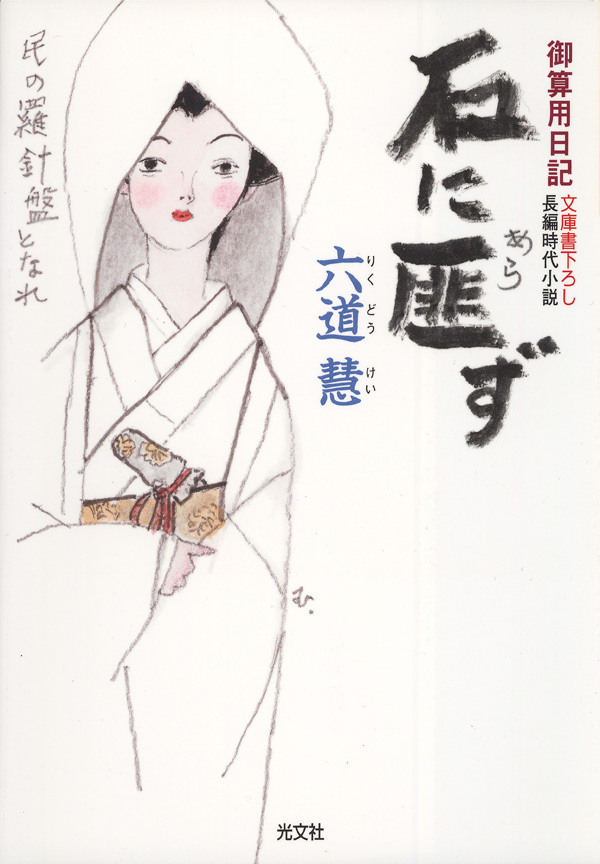 御算用日記
文庫書下ろし
長編時代小説
石に匪ず
あら
六道 慧
りく どう けい
民の羅針盤となれ
む.
光文社